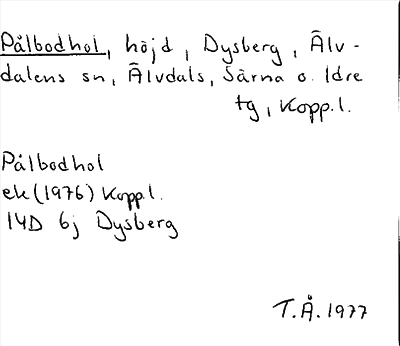 Pålbodhol, höjd, Dysberg, Älv-
dalens sn, Älvdals, Särna o. Idre
tg, Kopp.l.
Pålbodhol
ek (1976) Kopp.l.
14D 6j Dysberg
T.Å. 1977